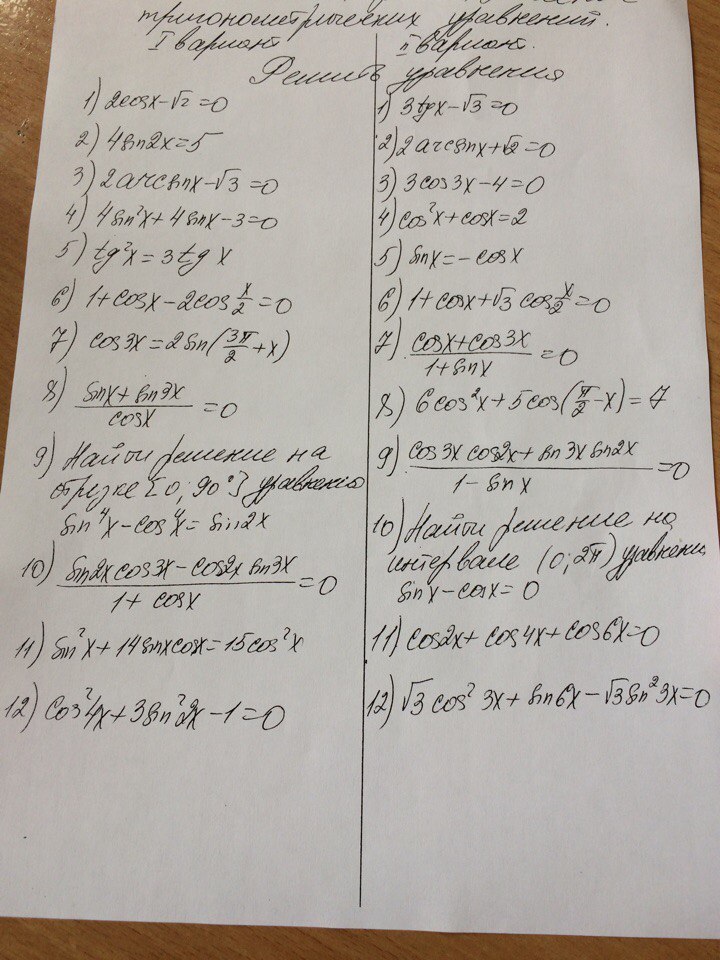 тригонометрических уравнений.
I вариант
II вариант.
Решить уравнения
1) 2cosx-√2=0
2) 4sin2x=5
3) 2arcsinx-√3=0
4) 4sin²x+4sinx-3=0
5) tg²x=3tgx
6) 1+cosx-2cos x/2=0
7) cos3x=2sin(3π/2+x)
8) (sinx+sin3x)/cosx=0
9) Найти решение на
отрезке [0; 90°] уравнения
sin⁴x-cos⁴x=sin2x
10) (sin2xcos3x-cos2xsin3x)/(1+cosx)=0
11) sin²x+14sinxcosx=15cos²x
12) cos²4x+3sin²2x-1=0
1) 3tgx-√3=0
2) 2arcsinx+√2=0
3) 3cos3x-4=0
4) cos²x+cosx=2
5) sinx=-cosx
6) 1+cosx+√3cos x/2=0
7) (cosx+cos3x)/(1+sinx)=0
8) 6cos²x+5cos(π/2-x)=7
9) (cos3xcos2x+sin3xsin2x)/(1-sinx)=0
10) Найти решение на
интервале (0; 2π) уравнения
sinx-cosx=0
11) cos2x+cos4x+cos6x=0
12) √3cos²3x+sin6x-√3sin²3x=0